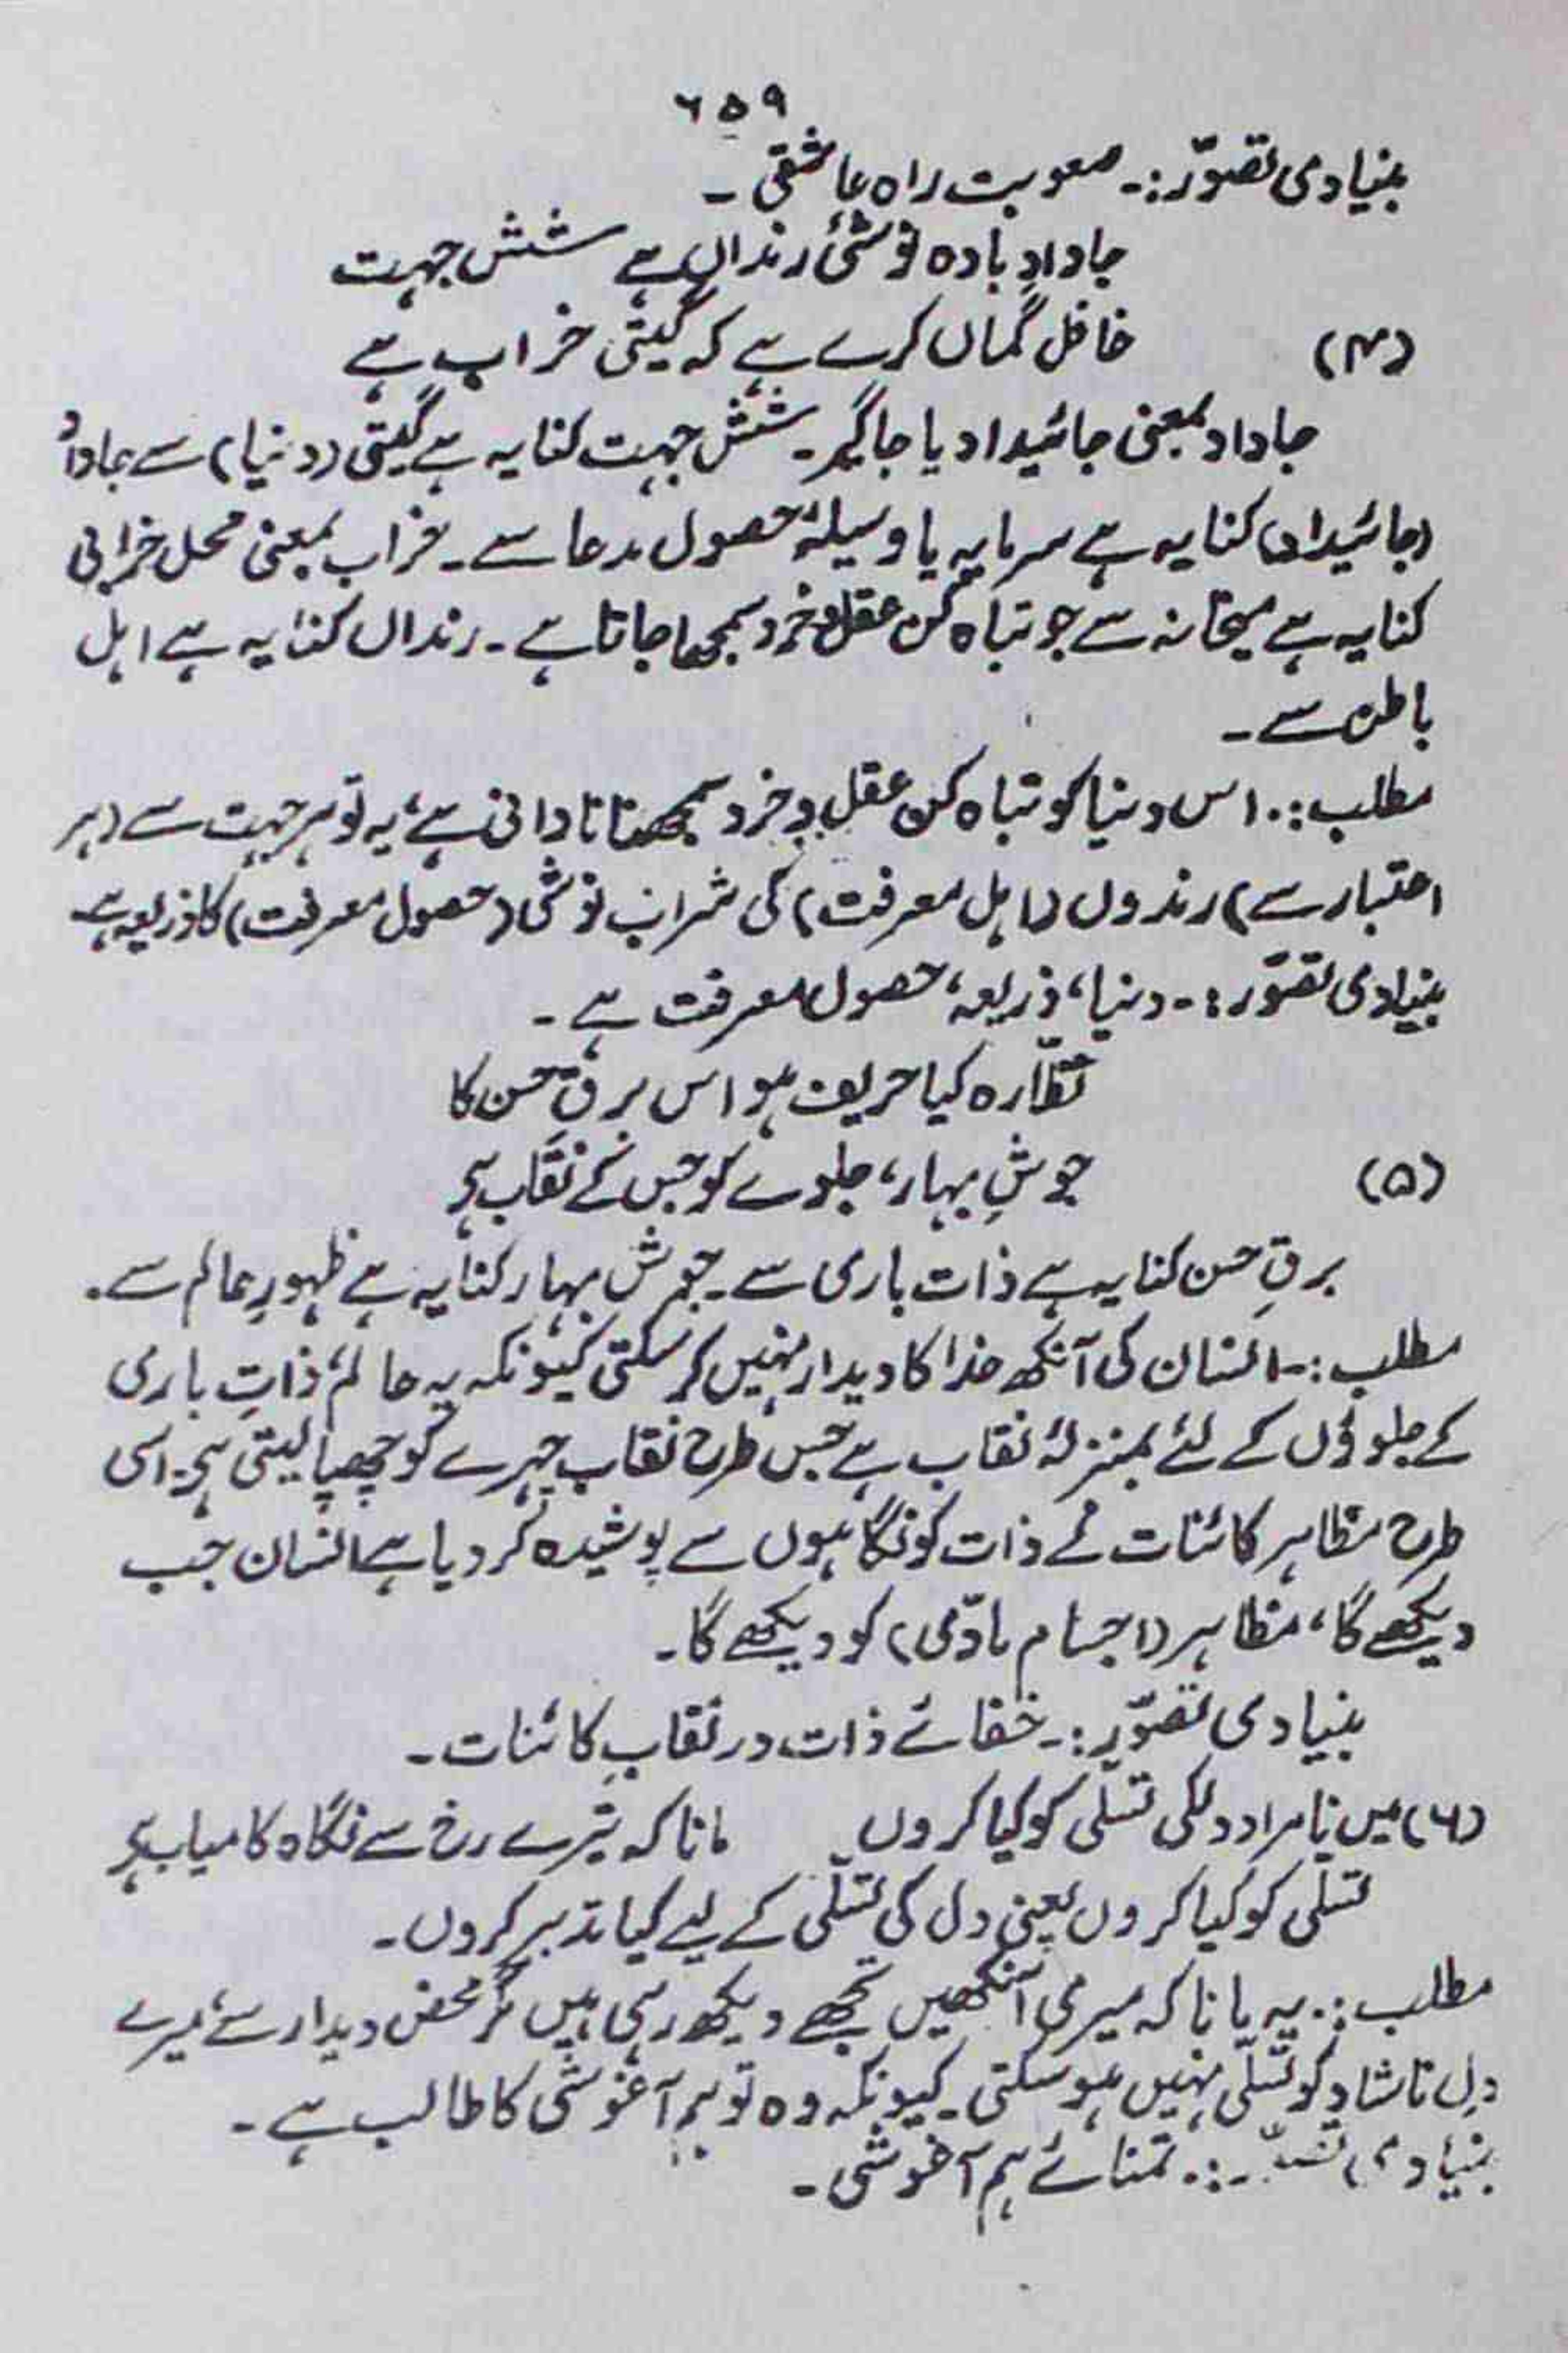 ۶۵۹
بنیادی تصوّر:۔ صعوبت راہ عاشقی ۔
جادادِ بادہ نوشیٔ رنداں ہے شش جہت
(۴) غافل گماں کرے ہے کہ گیتی خراب ہے
جاداد بمعنی جائیداد یا جاگیر۔ شش جہت کنایہ ہے گیتی (دنیا) سے جاداد
(جائیداد) کنایہ ہے سرمایہ یا وسیلۂ حصول مدعا سے۔ خراب بمعنی محل خرابی
کنایہ ہے میخانہ سے جو تباہ کن عقل و خرد سمجھا جاتا ہے۔ رنداں کنایہ ہے اہل
باطن سے ۔
مطلب:۔ اس دنیا کو تباہ کن عقل و خرد سمجھنا نادانی ہے، یہ تو ہر جہت سے (ہر
اعتبار سے) رندوں (اہل معرفت) کی شراب نوشی (حصول معرفت) کا ذریعہ ہے
بنیادی تصوّر:۔ دنیا، ذریعہ، حصول معرفت ہے ۔
نظّارہ کیا حریف ہو اس برقِ حسن کا
(۵) جوشِ بہار، جلوے کو جس کے نقاب ہے
برقِ حسن کنایہ ہے ذات باری سے۔ جوش بہار کنایہ ہے ظہورِ عالم سے ۔
مطلب:۔ انسان کی آنکھ خدا کا دیدار نہیں کر سکتی کیونکہ یہ عالم، ذاتِ باری
کے جلوؤں کے لئے بمنزلۂ نقاب ہے جس طرح نقاب چہرے کو چھپا لیتی ہے۔ اسی
طرح مظاہر کائنات نے ذات کو نگاہوں سے پوشیدہ کر دیا ہے انسان جب
دیکھے گا، مظاہر (اجسام مادّی) کو دیکھے گا۔
بنیادی تصوّر:۔ خفائے ذات در نقابِ کائنات ۔
(۶) میں نامراد دل کی تسلّی کو کیا کروں مانا کہ تیرے رخ سے نگاہ کامیاب ہے
تسلّی کو کیا کروں یعنی دل کی تسلّی کے لیے کیا تدبیر کروں ۔
مطلب:۔ یہ مانا کہ میری آنکھیں تجھے دیکھ رہی ہیں مگر محض دیدار سے، میرے
دلِ ناشاد کو تسلّی نہیں ہو سکتی۔ کیونکہ وہ تو ہم آغوشی کا طالب ہے ۔
بنیادی :۔ تمنائے ہم آغوشی ۔